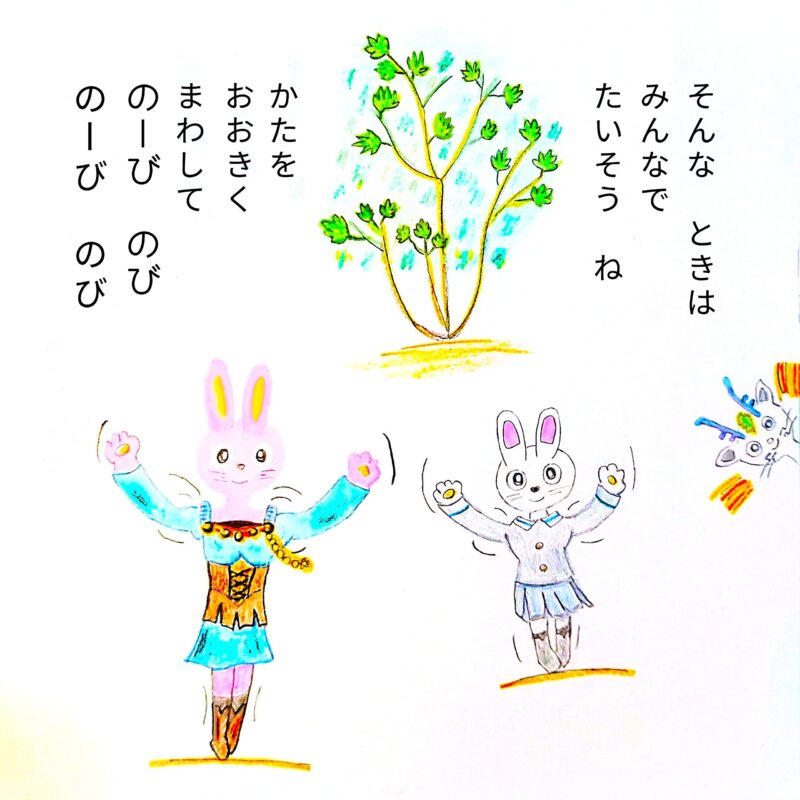 そんな ときは
みんなで
たいそう ね
かたを
おおきく
まわして
のーび のび
のーび のび